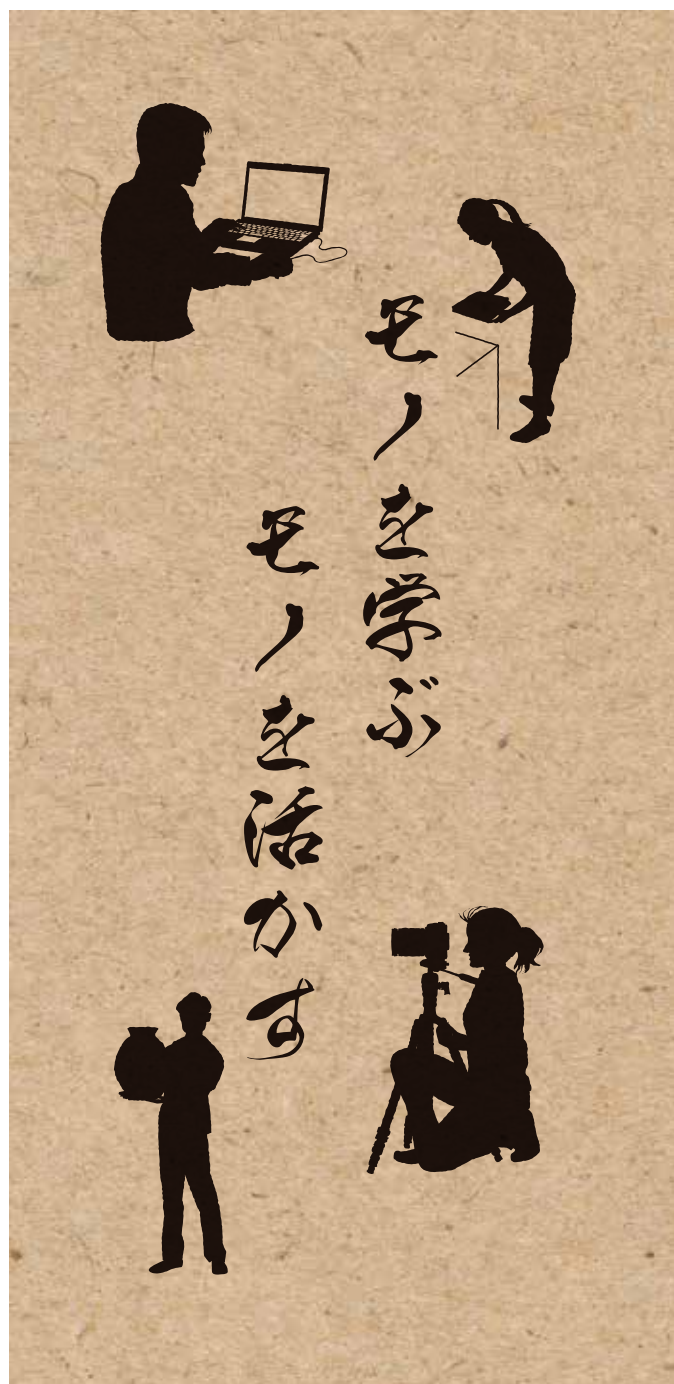 モノを学ぶ
モノを活かす